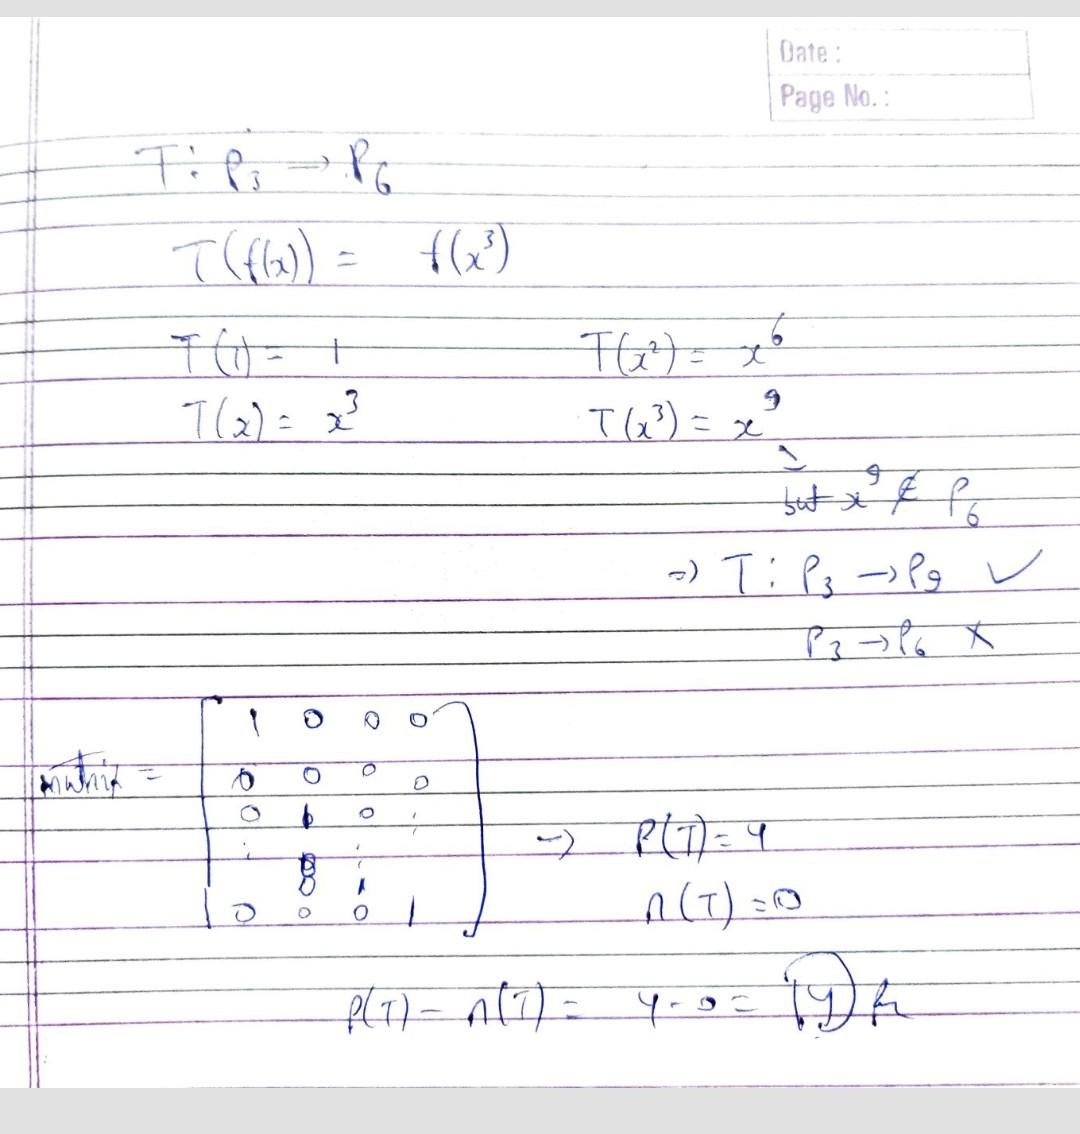 Date :
Page No. :
T : P₃ → P₆
T(f(x)) = f(x³)
T(1) = 1 T(x²) = x⁶
T(x) = x³ T(x³) = x⁹
but x⁹ ∉ P₆
=) T : P₃ → P₉ ✓
P₃ → P₆ ×
matrix =
1 0 0 0
0 0 0 0
0 1 0 :
: 0 :
0 1
0 0 0 1
→ P(T) = 4
n(T) = 0
P(T) - n(T) = 4 - 0 = 4